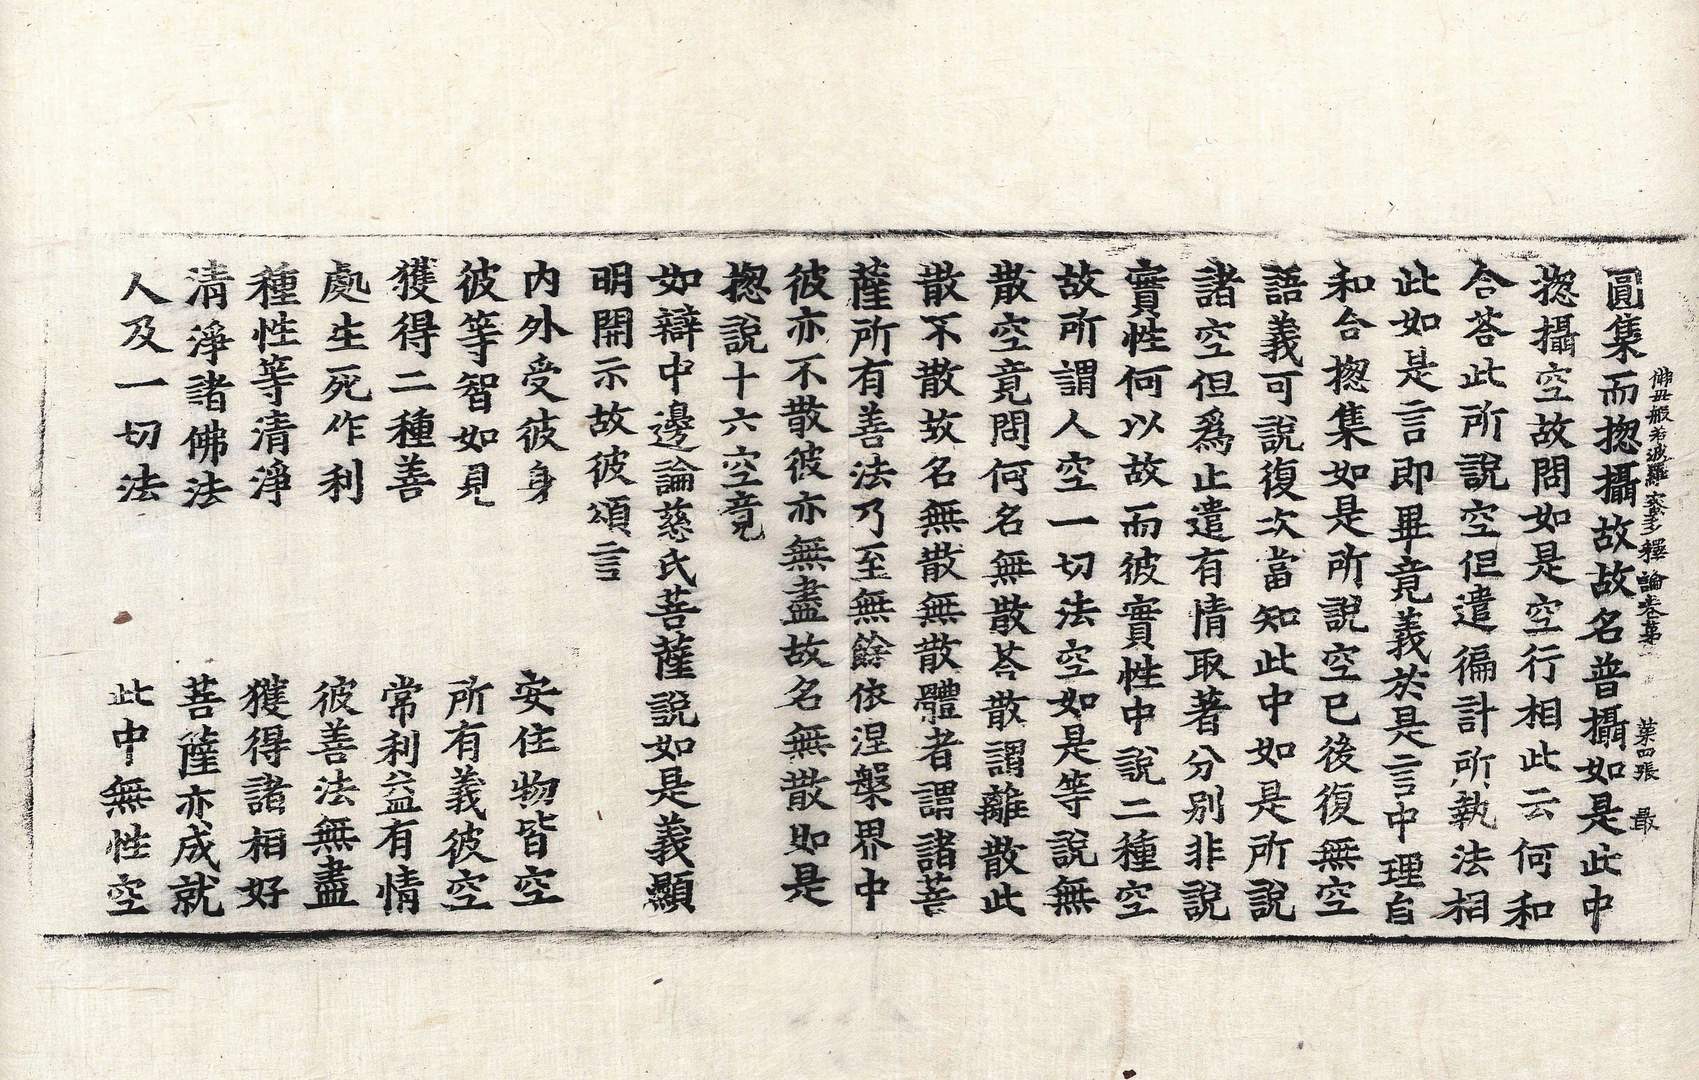 佛母般若波羅蜜多釋論卷第二 第四張 最
圓集而揔攝故故名普攝如是此中
揔攝空故問如是空行相此云何和
合荅此所說空但遣徧計所執法相
此如是言即畢竟義於是言中理自
和合揔集如是所說空已後復無空
語義可說復次當知此中如是所說
諸空但爲止遣有情取著分別非說
實性何以故而彼實性中說二種空
故所謂人空一切法空如是等說無
散空竟問何名無散荅散謂離散此
散不散故名無散無散體者謂諸菩
薩所有善法乃至無餘依涅槃界中
彼亦不散彼亦無盡故名無散如是
揔說十六空竟
如辯中邊論慈氏菩薩說如是義顯
明開示故彼頌言
內外受彼身 安住物皆空
彼等智如見 所有義彼空
獲得二種善 常利益有情
處生死作利 彼善法無盡
種性等清淨 獲得諸相好
清淨諸佛法 菩薩亦成就
人及一切法 此中無性空